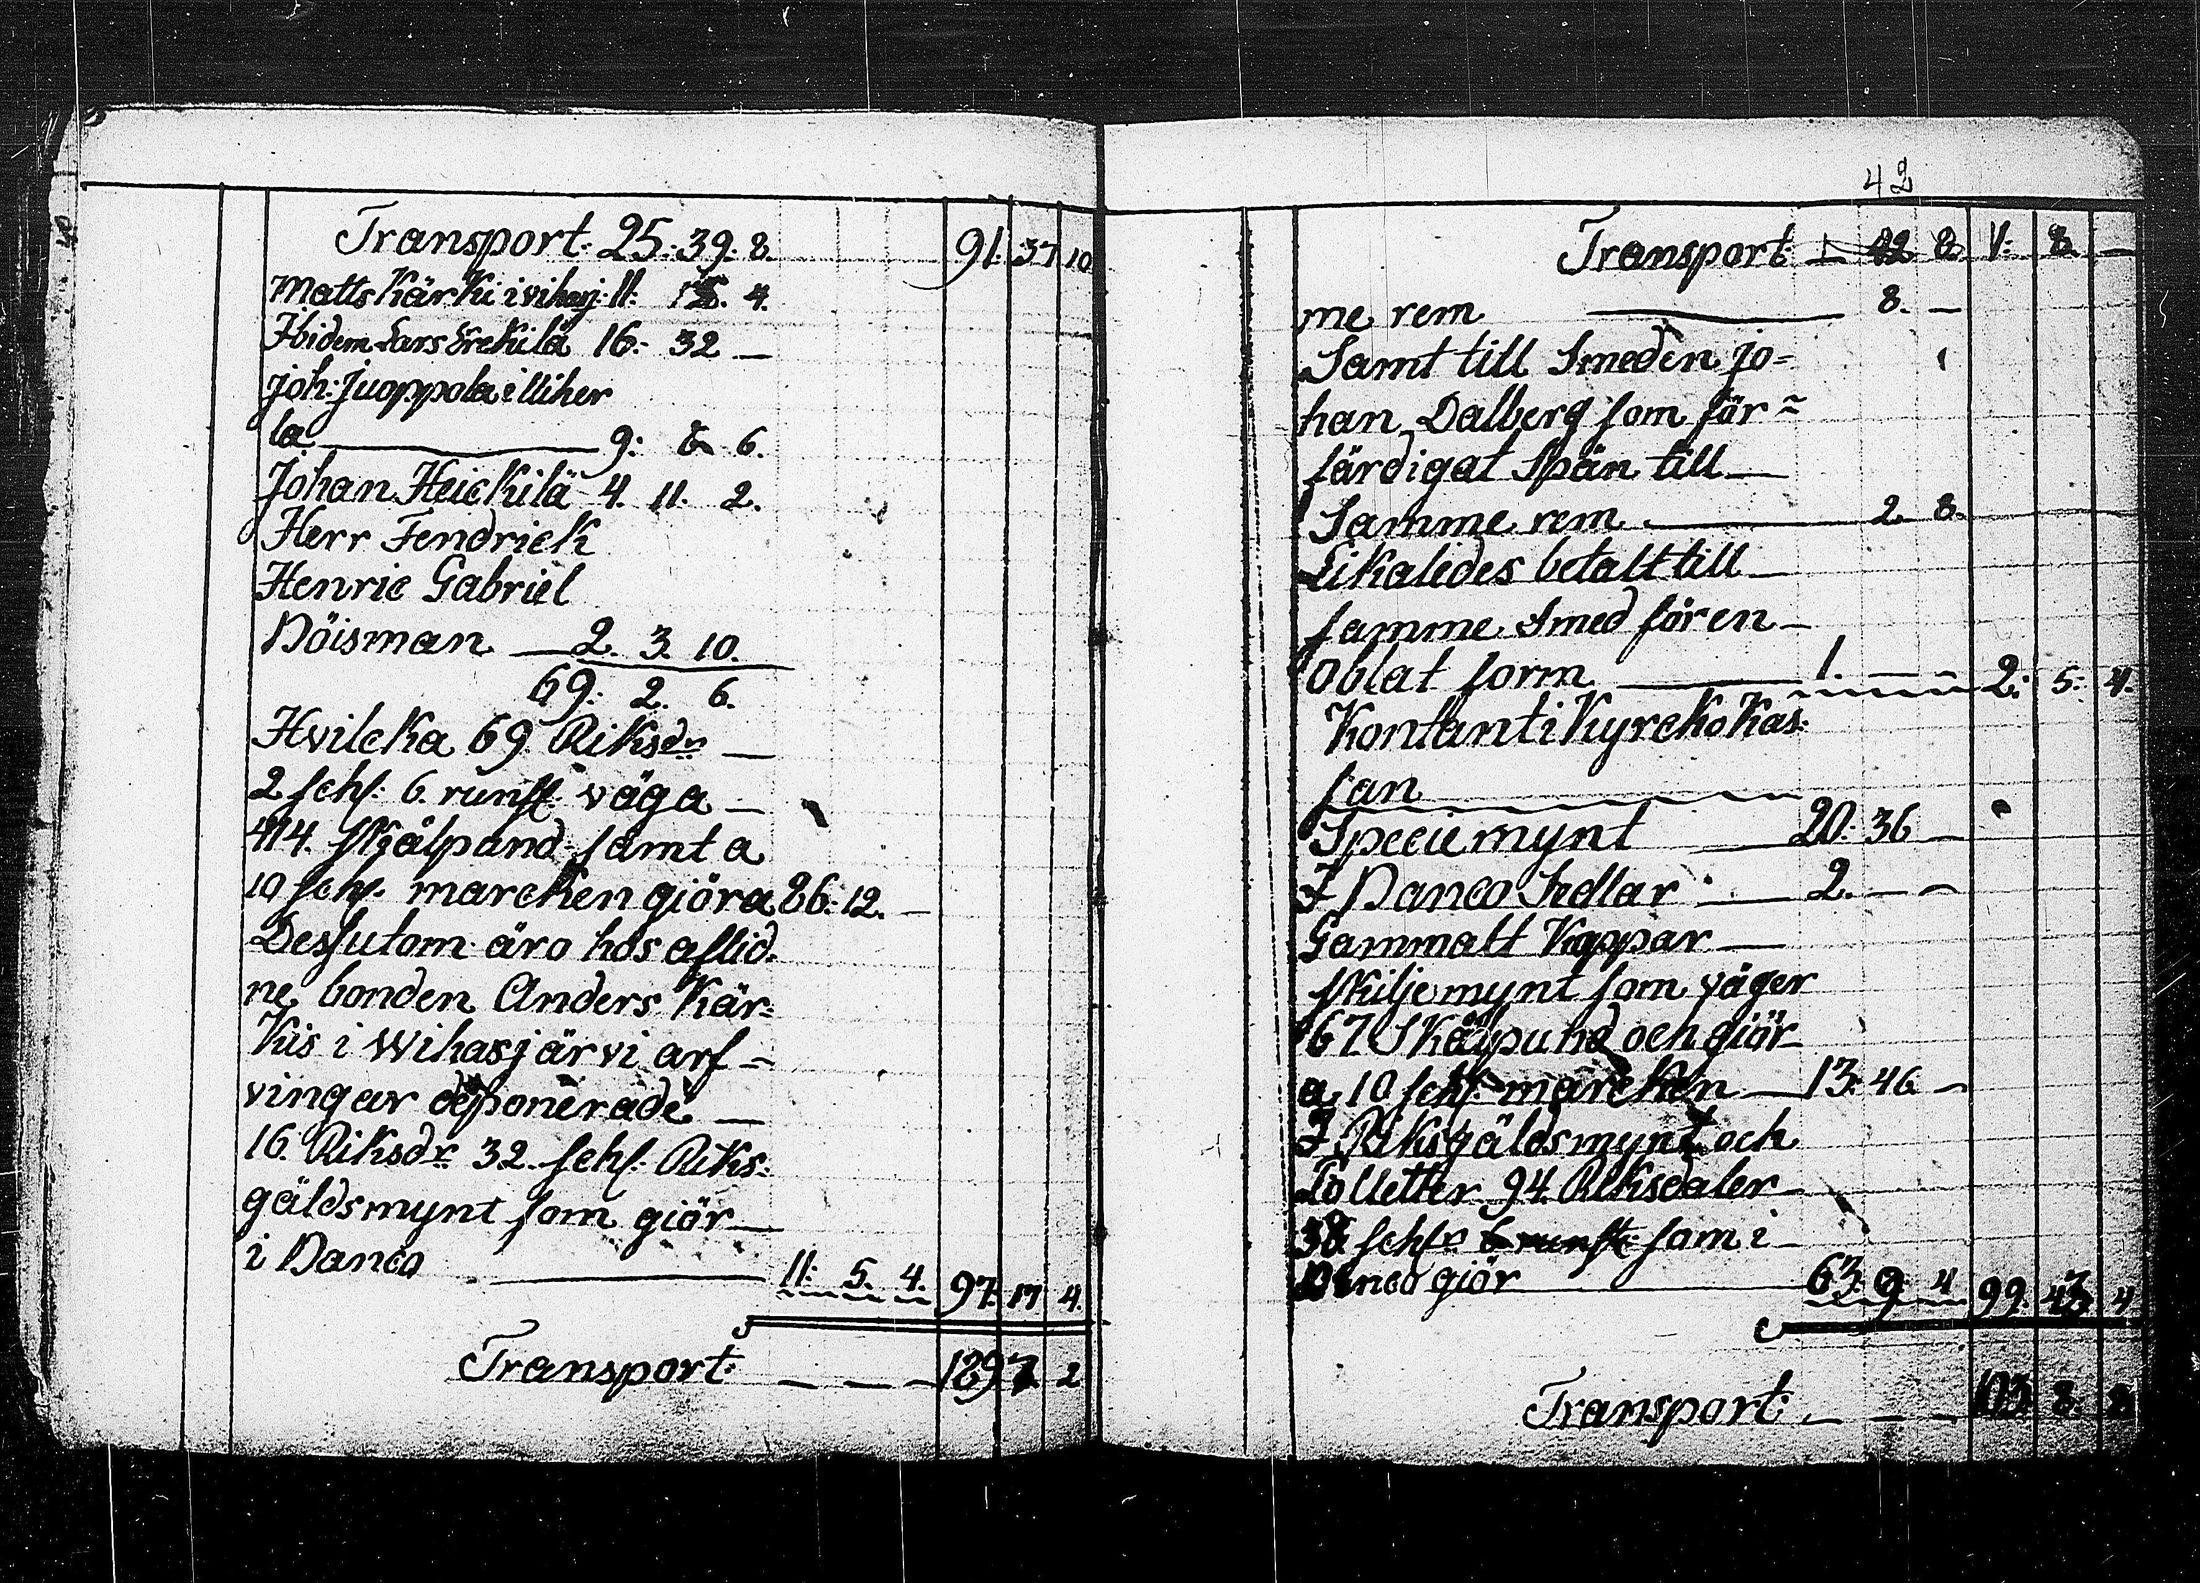 Transport: 25:39:8. 91:37 10
Matts Kärki i vihasj: 11: 4.
Ibidem Lars Erckilä 16:- 32 —
Joh: Juoppola i Uiher
la — 9: 8 6.
Johan Heickilä 4. 11. 2.
Herr Fendrick
Henric Gabriel
Nöisman — 2. 3. 10.
69: 2. 6.
Hvilcka 69 Riksdr —
2 sch: 6. runst: väga —
414. skjålpund samt a
10 sch: marcken giöra 86:12. —
Dessutom äro hos aflid-
ne bonden Anders Kär-
Kis i Wihasjärvi arf -
vingar deponerade —
16. Riksdr 32. sch: Riks:
gäldsmynt som giör —
i Banco — 11: 5. 4. 97: 17 4.
Transport: — — — 189 7 2
42
Transport: 1 42 8 1: 8 —
me rem — 8. —
Samt till Smeden Jo=
han Dalberg som för=
färdigat Spän till —
Samme rem — 2 8.
Likaledes betalt till —
samme Smed för en —
Oblat form — 1. — — 2: 5: 4.
Kontant i Kyrcko Kas:
san
Specie mynt — 20: 36 —
I Banco Sedlar — 2. — —
Gammalt Koppar —
skilje mynt som väger
167 Skålpund och giör
a 10 sch: marcken — 13: 46 —
I Riksgäldsmynt och
Polletter 94 Riksdaler —
38 sch: 6 runst: som i —
Banco giör — 63: 9 4 99: 43 4
Transport: — — — 103 8. 8